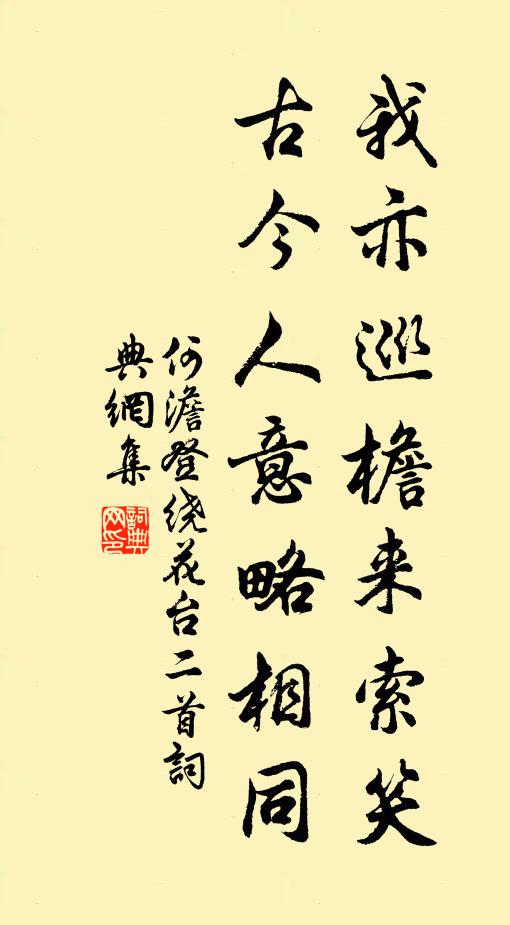 我亦巡檐来索笑
古今人意略相同
何澹登绕花台二首詞
典網集
詞典
网印